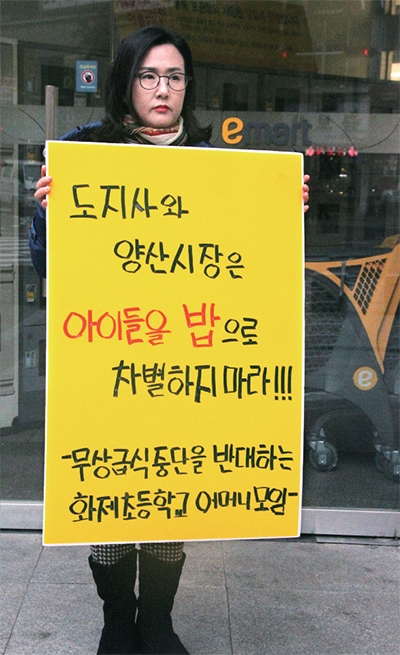 emart
도지사와
양산시장은
아이들을 밥으로
차별하지마라!!!
-무상급식중단을 반대하는
화제초등학교 어머니모임-
e